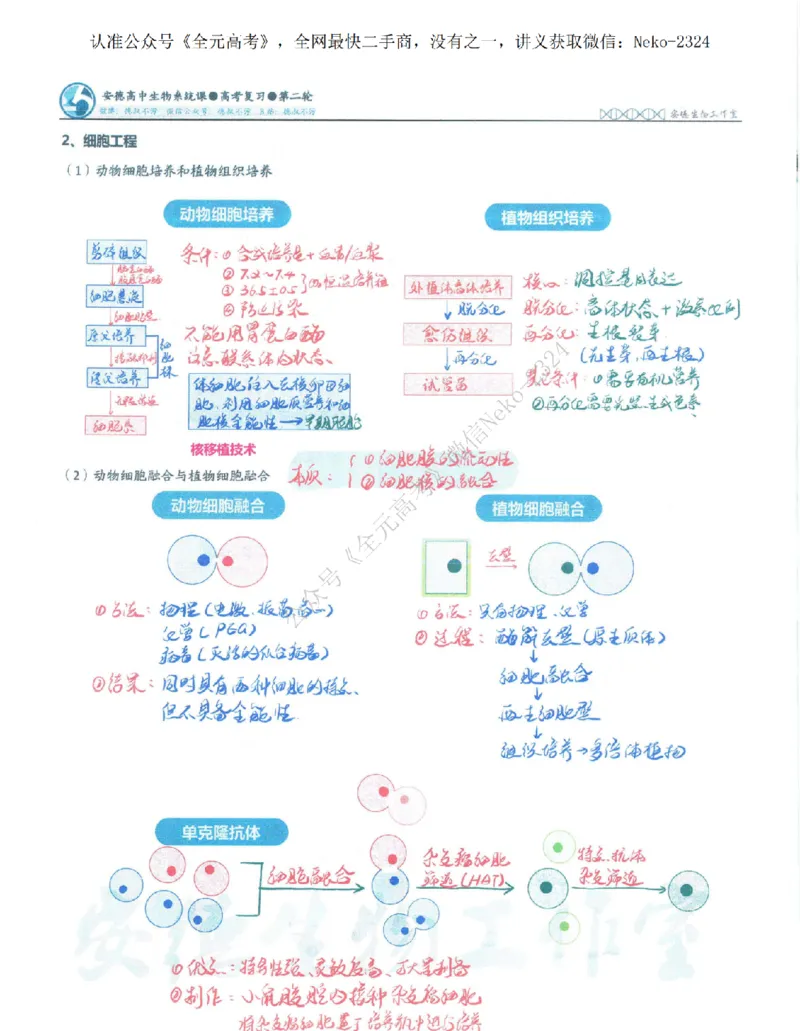 认准公众号《全元高考》，全网最快二手商，没有之一，讲义获取微信：Neko-2324
安德高中生物系统课●高考复习●第二轮
安德生物工作室
2、细胞工程
（1）动物细胞培养和植物组织培养
动物细胞培养
植物组织培养
剪碎组织
细胞悬液
原代培养
传代培养
细胞系
细胞株
条件：① 合成培养基＋血清/血浆
② 7.2~7.4
③ 36.5±0.5
④ 防止污染
不能用胃蛋白酶
体细胞注入去核卵母细
胞，利用细胞质营养和细
胞核全能性→早期胚胎
核移植技术
外植体离体培养
脱分化
愈伤组织
再分化
试管苗
核心：调控基因表达
脱分化：离体状态＋激素比例
再分化：生根发芽
（先生芽，再生根）
①需要有机营养
②再分化需要光照，生成色素
（2）动物细胞融合与植物细胞融合
本质：
①细胞膜的流动性
②细胞核的融合
动物细胞融合
植物细胞融合
去壁
①方法：物理（电激、振荡、离心）
化学（PEG）
病毒（灭活的仙台病毒）
②结果：同时具有两种细胞的特点、
但不具备全能性
①方法：只有物理、化学
②过程：酶解去壁（原生质体）
细胞融合
再生细胞壁
组织培养→多倍体植物
单克隆抗体
细胞融合
杂交瘤细胞
筛选（HAT）
特定抗体
杂交筛选
①优点：特异性强、灵敏度高、可大量制备
②制作：小鼠腹腔内接种杂交瘤细胞
将杂交瘤细胞置于培养瓶中进行培养
公众号《全元高考》微信Neko-2324
安德生物工作室